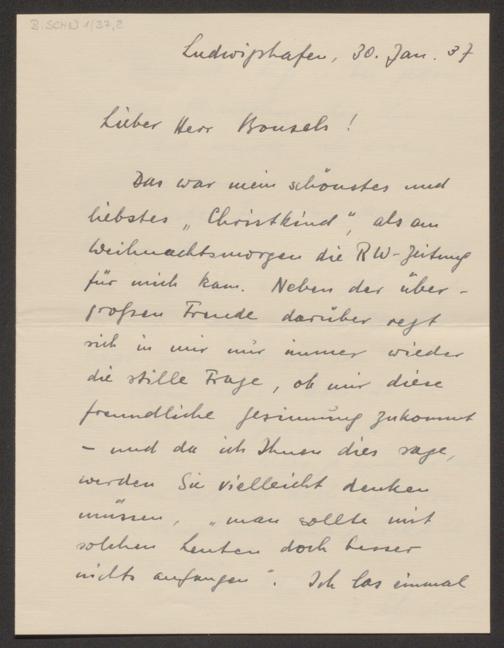 B.SCHN 1/37,2
Ludwigshafen, 30. Jan. 37
Lieber Herr Bonsels!
Das war mein schönstes und
liebstes „Christkind“, als am
Weihnachtsmorgen die RW-Zeitung
für mich kam. Neben der über-
großen Freude darüber regt
sich in mir nur immer wieder
die stille Frage, ob mir diese
freundliche Gesinnung zukommt
– und da ich Ihnen dies sage,
werden Sie vielleicht denken
müssen, „man sollte mit
solchen Leuten doch besser
nichts anfangen“. Ich las einmal